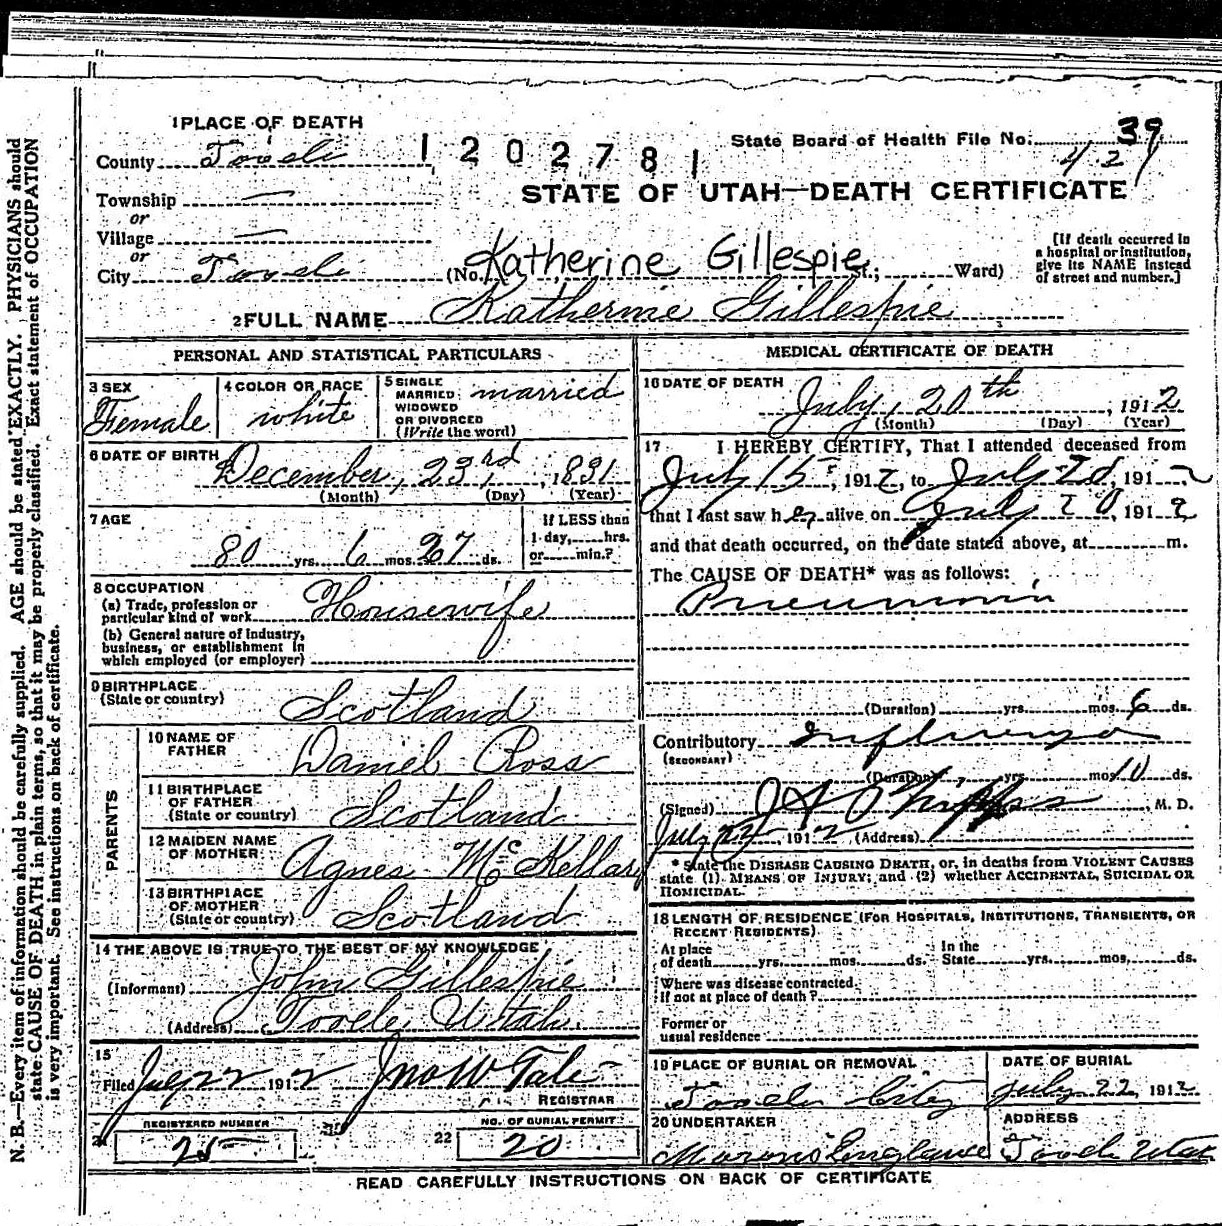 1 PLACE OF DEATH
County Tooele
1202781
State Board of Health File No. 39
429
Township —
STATE OF UTAH—DEATH CERTIFICATE
or
Village —
or
City Tooele (No. Katherine Gillespie St.; Ward)
[If death occurred in
a hospital or institution,
give its NAME instead
of street and number.]
2 FULL NAME Katherine Gillespie
PERSONAL AND STATISTICAL PARTICULARS
3 SEX
Female
4 COLOR OR RACE
white
5 SINGLE
MARRIED
WIDOWED
OR DIVORCED
(Write the word)
married
6 DATE OF BIRTH
December, 23rd, 1831
(Month) (Day) (Year)
7 AGE
80 yrs. 6 mos. 27 ds.
If LESS than
1 day, hrs.
or min.?
8 OCCUPATION
(a) Trade, profession or
particular kind of work Housewife
(b) General nature of industry,
business, or establishment in
which employed (or employer)
9 BIRTHPLACE
(State or country) Scotland
PARENTS
10 NAME OF
FATHER Daniel Ross
11 BIRTHPLACE
OF FATHER
(State or country) Scotland
12 MAIDEN NAME
OF MOTHER Agnes McKellar
13 BIRTHPLACE
OF MOTHER
(State or country) Scotland
14 THE ABOVE IS TRUE TO THE BEST OF MY KNOWLEDGE
(Informant) John Gillespie
(Address) Tooele Utah.
15
Filed July 22 1912 Jno W Tate
REGISTRAR
21 REGISTERED NUMBER
25
22 NO. OF BURIAL PERMIT
20
MEDICAL CERTIFICATE OF DEATH
16 DATE OF DEATH
July, 20th, 1912
(Month) (Day) (Year)
17 I HEREBY CERTIFY, That I attended deceased from
July 15, 1912, to July 20, 1912
that I last saw her alive on July 20, 1912
and that death occurred, on the date stated above, at m.
The CAUSE OF DEATH* was as follows:
Pneumonia
(Duration) yrs. mos. 6 ds.
Contributory Influenza
(SECONDARY)
(Duration) yrs. mos. 10 ds.
(Signed) J A Phipps, M. D.
July 22, 1912 (Address)
* State the DISEASE CAUSING DEATH, or, in deaths from VIOLENT CAUSES
state (1) MEANS OF INJURY; and (2) whether ACCIDENTAL, SUICIDAL OR
HOMICIDAL.
18 LENGTH OF RESIDENCE (FOR HOSPITALS, INSTITUTIONS, TRANSIENTS, OR
RECENT RESIDENTS)
At place In the
of death yrs. mos. ds. State yrs. mos. ds.
Where was disease contracted
If not at place of death?
Former or
usual residence
19 PLACE OF BURIAL OR REMOVAL
Tooele City
DATE OF BURIAL
July 22, 1912
20 UNDERTAKER
ADDRESS
Tooele Utah
READ CAREFULLY INSTRUCTIONS ON BACK OF CERTIFICATE
N. B.—Every item of information should be carefully supplied. AGE should be stated EXACTLY. PHYSICIANS should
state CAUSE OF DEATH in plain terms, so that it may be properly classified. Exact statement of OCCUPATION
is very important. See instructions on back of certificate.